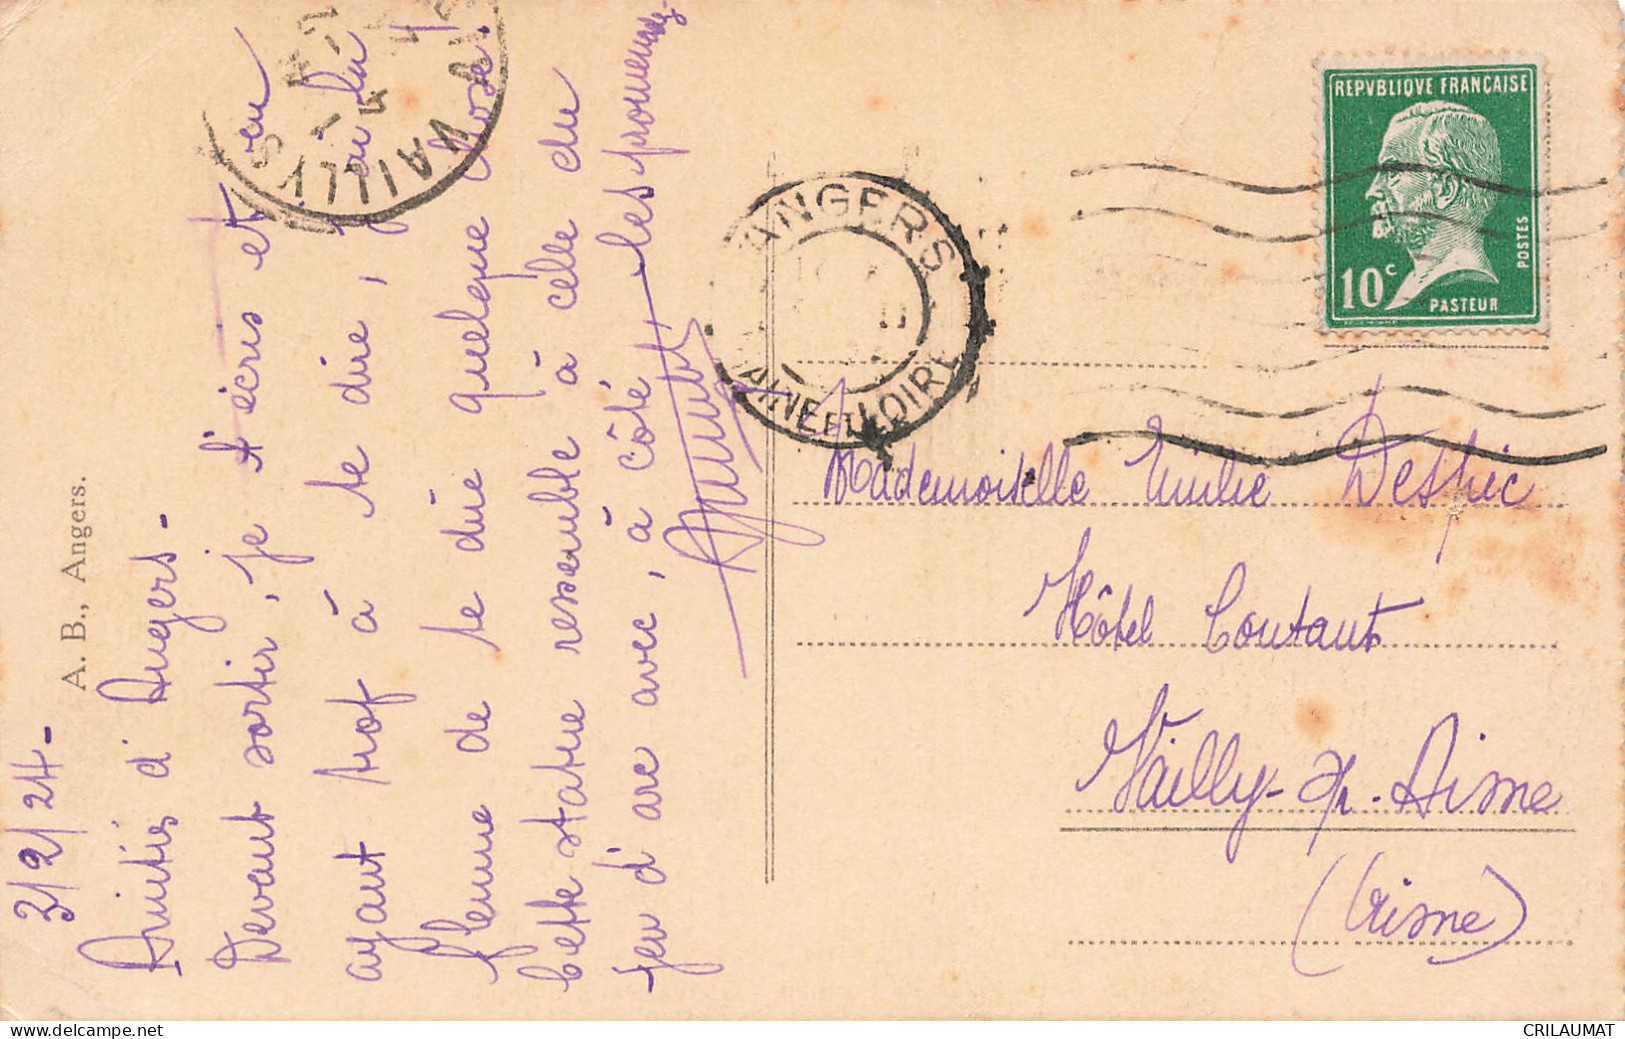 3/2/24-
A. B., Angers.
Amitiés d'Angers-
Devant sortir, je t'écris et en
ayant trop à te dire, j'ai la
flemme de te dire quelque chose!
Cette statue ressemble à celle du
jeu d'arc avec, à côté, les promenades-
VAILLY S
REPVBLIQVE FRANÇAISE
10c
PASTEUR
POSTES
ANGERS
MAINE ET LOIRE
Mademoiselle Emilie
Hôtel Coutant
Vailly-s/r-Aisne
(Aisne)
delcampe.net
CRILAUMAT